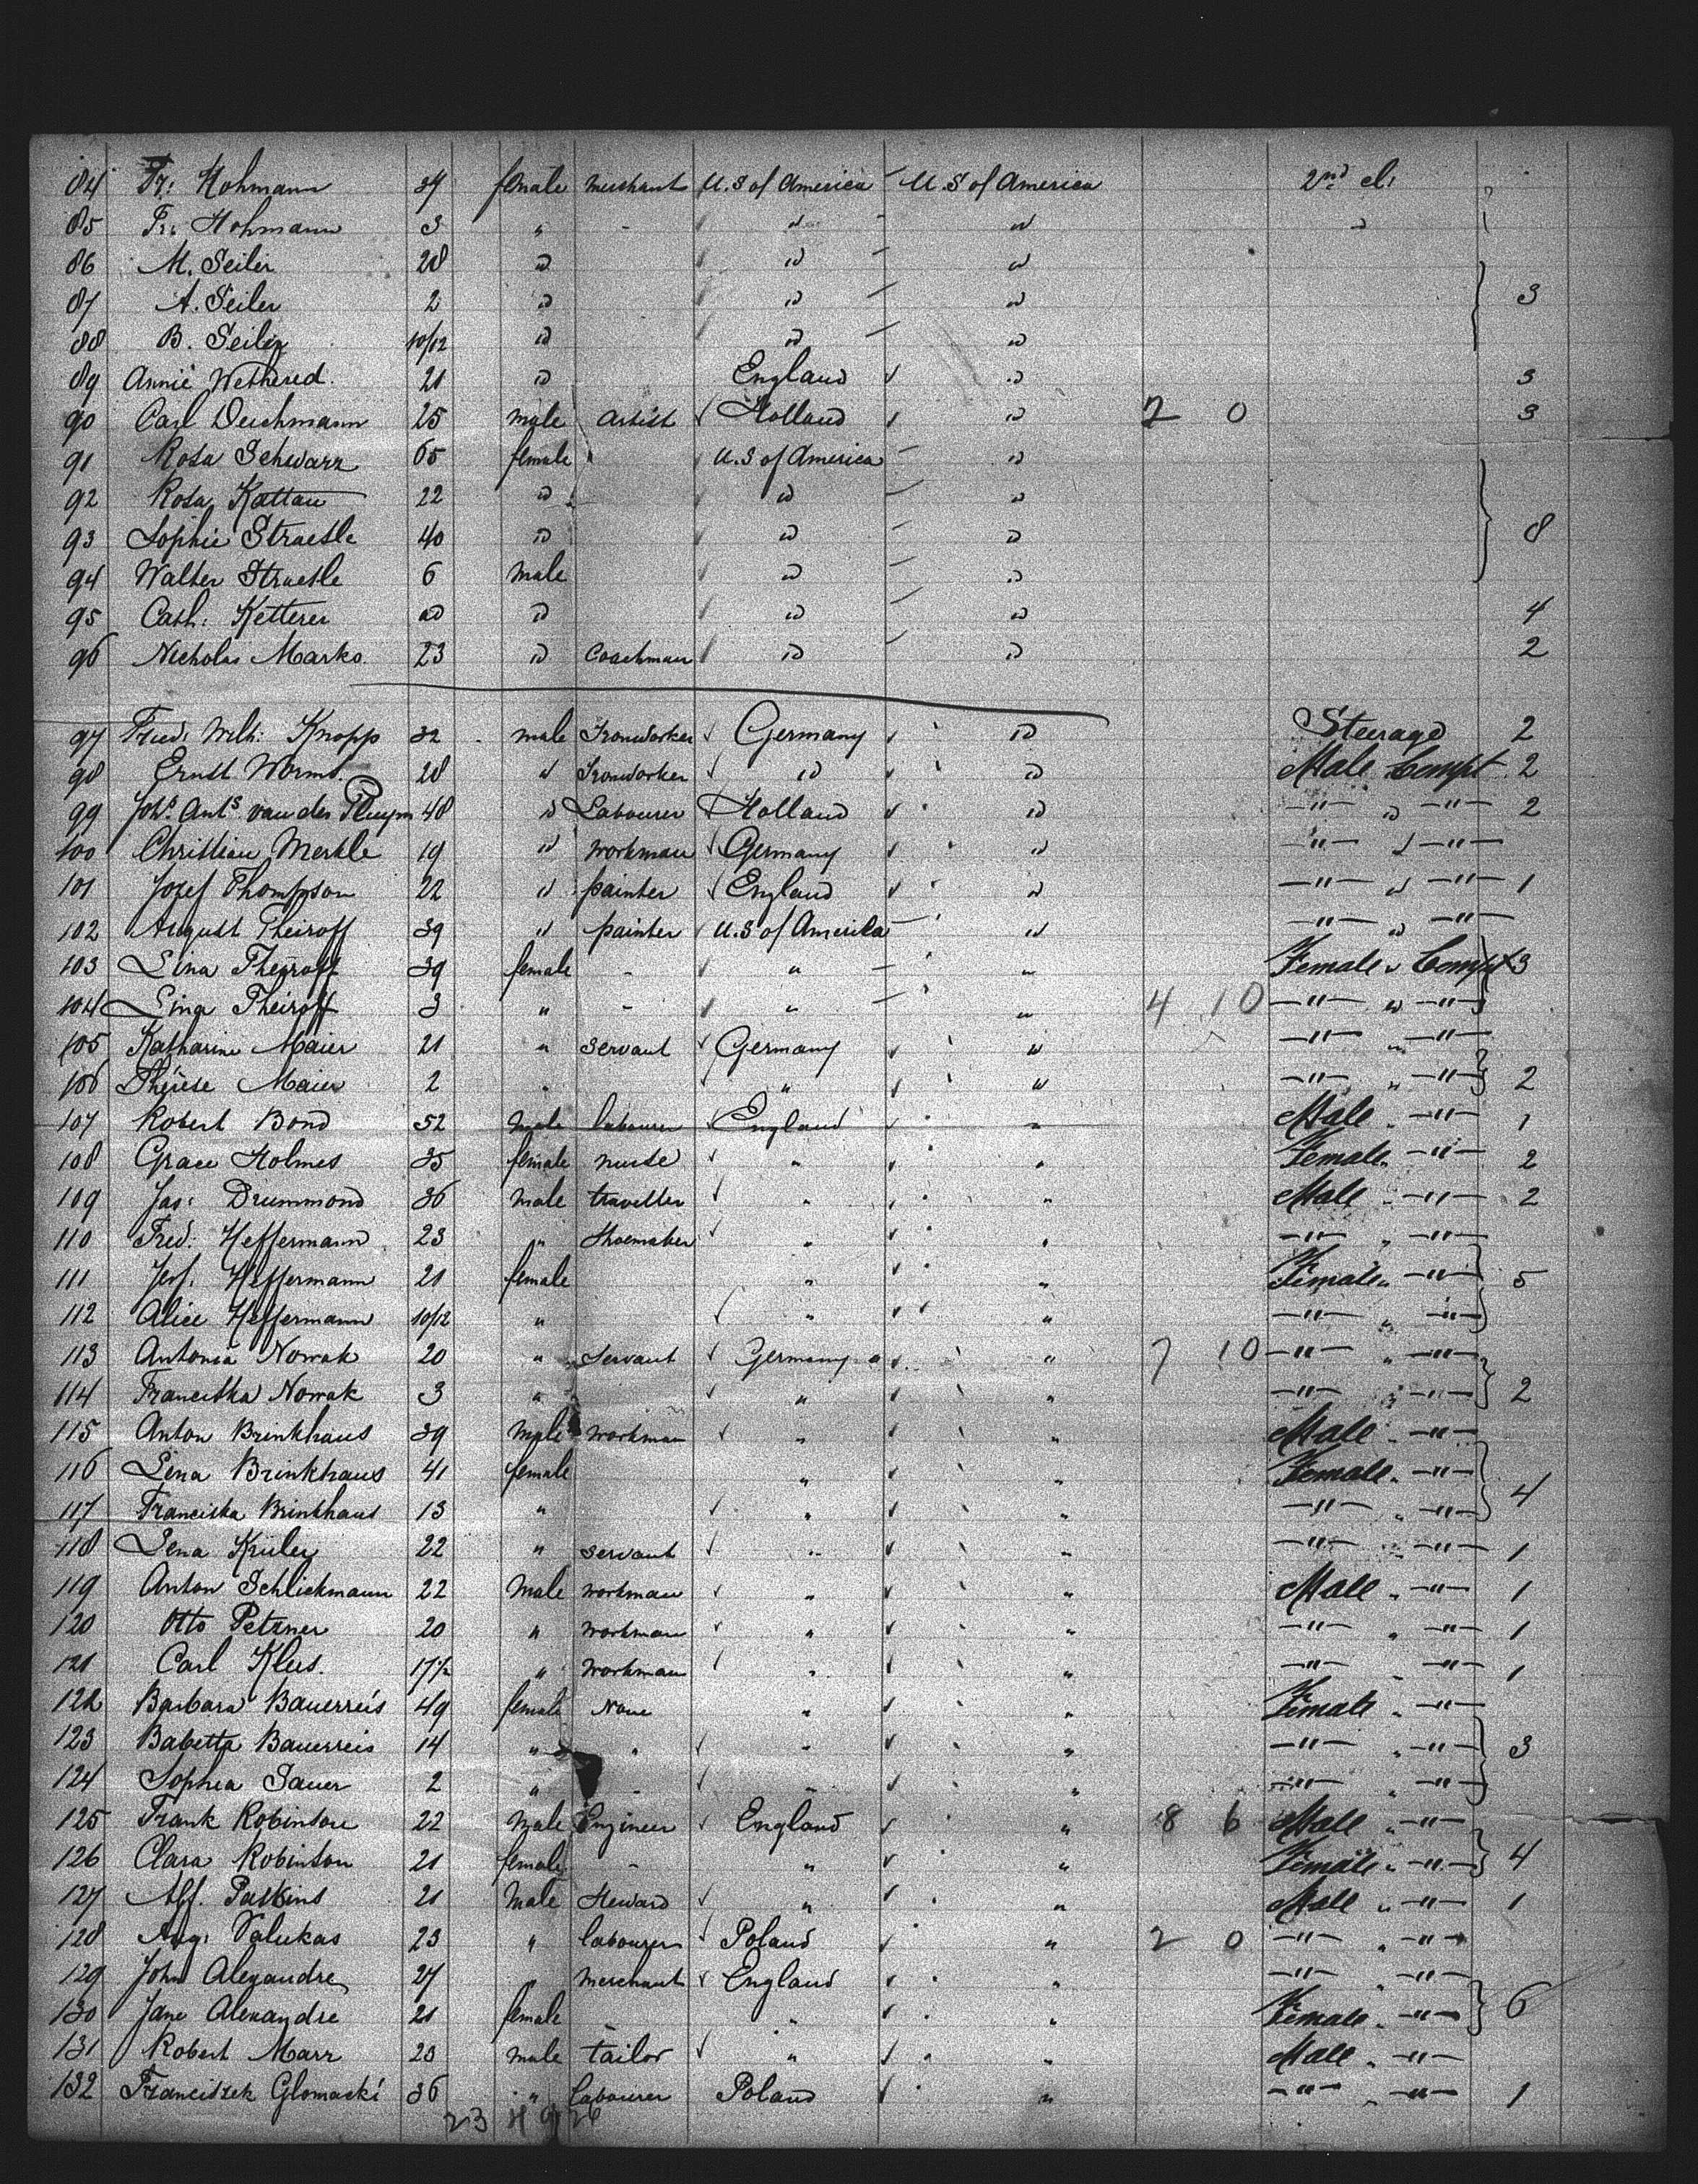 84 Fr: Hohmann 34 female merchant U.S of America U.S of America 2nd cl:
85 Fr: Hohmann 3 " - " "
86 M. Seiler 28 id id id
87 A. Seiler 2 id id id 3
88 B. Seiler 10/12 id id id
89 Annie Wethered. 21 id England id 3
90 Carl Deichmann 25 male artist Holland id 2 0 3
91 Rosa Schwarz 65 female U.S of America id
92 Rosa Kattau 22 id id id
93 Sophie Straesle 40 id id id 8
94 Walter Straesle 6 male id id
95 Cath: Ketterer id id id 4
96 Nicholas Marko. 23 id Coachman id id 2
97 Fried. Wilh: Knopp 32 male Ironworker Germany id Steerage 2
98 Ernst Worms. 28 id Ironworker id id Male Compt. 2
99 Joh. Ants van der Pluym 48 id Labourer Holland id —"— id —"— 2
100 Christian Merkle 19 id workman Germany id —"— id —"—
101 Jozef Thompson 22 id painter England id —"— id —"— 1
102 August Theiroff 39 id painter U.S of America id —"— id —"—
103 Lina Theiroff 39 female - " " Female " Compt 3
104 Lina Theiroff 3 " - " " 4 10 —"— " —"—
105 Katharine Maier 21 " servant Germany id —"— " —"—
106 Thérese Maier 2 " " id —"— " —"— 2
107 Robert Bond 52 male labourer England " Male —"— 1
108 Grace Holmes 35 female nurse " " Female " —"— 2
109 Jas: Drummond 36 male traveller " " Male " —"— 2
110 Fred: Heffermann 23 " Shoemaker " " —"— " —"—
111 Jes. Heffermann 21 female " " Female " —"— 5
112 Alice Heffermann 10/12 " " " —"— " —"—
113 Antonia Nowak 20 " servant Germany " 7 10 —"— " —"—
114 Franciska Nowak 3 " " " —"— " —"— 2
115 Anton Brinkhaus 39 male workman " " Male " —"—
116 Lena Brinkhaus 41 female " " Female " —"—
117 Franciska Brinkhaus 13 " " " —"— " —"— 4
118 Lena Krüler 22 " servant " " —"— " —"— 1
119 Anton Schlickmann 22 Male workman " " Male " —"— 1
120 Otto Petzner 20 " workman " " —"— " —"— 1
121 Carl Klus. 17½ " workman " " —"— " —"— 1
122 Barbara Bauerreis 49 female None " " Female " —"—
123 Babetta Bauerreis 14 " " " " —"— " —"— 3
124 Sophia Sauer 2 " - " " —"— " —"—
125 Frank Robinson 22 male Engineer England " 8 6 Male " —"—
126 Clara Robinson 21 female - " " Female " —"— 4
127 Alf. Paskins 21 Male Steward " " Male " —"— 1
128 Aug: Valukas 23 " labourer Poland " 2 0 —"— " —"—
129 John Alexandre 27 " merchant England " —"— " —"—
130 Jane Alexandre 21 female - " " Female " —"— 6
131 Robert Marr 23 male tailor " " Male " —"—
132 Franciszek Glomacki 36 " Labourer Poland " —"— " —"— 1
23